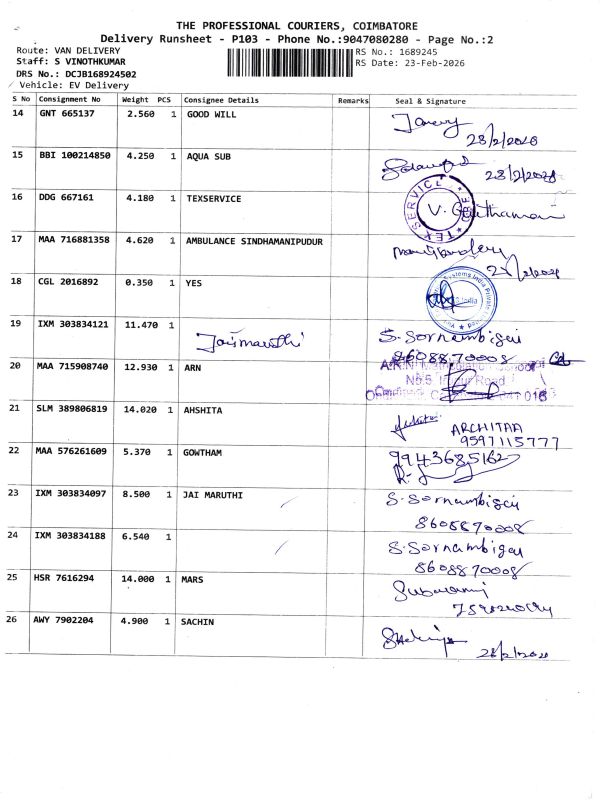 THE PROFESSIONAL COURIERS, COIMBATORE
Delivery Runsheet - P103 - Phone No.:9047080280 - Page No.:2
Route: VAN DELIVERY RS No.: 1689245
Staff: S VINOTHKUMAR RS Date: 23-Feb-2026
DRS No.: DCJB168924502
Vehicle: EV Delivery
S No Consignment No Weight PCS Consignee Details Remarks Seal & Signature
14 GNT 665137 2.560 1 GOOD WILL
28/2/2026
15 BBI 100214850 4.250 1 AQUA SUB
28/2/2026
16 DDG 667161 4.180 1 TEXSERVICE
TEXSERVICE
V.
17 MAA 716881358 4.620 1 AMBULANCE SINDHAMANIPUDUR
18 CGL 2016892 0.350 1 YES
Systems India Private
India
19 IXM 303834121 11.470 1 Jaimaruthi S. Sornambigai
8608870008
20 MAA 715908740 12.930 1 ARN
School
No.5 Road
21 SLM 389806819 14.020 1 AHSHITA
ARCHITAA
9597115777
22 MAA 576261609 5.370 1 GOWTHAM 9943685162
23 IXM 303834097 8.500 1 JAI MARUTHI S. Sornambigai
8608870008
24 IXM 303834188 6.540 1 S. Sornambigai
8608870008
25 HSR 7616294 14.000 1 MARS
26 AWY 7902204 4.900 1 SACHIN
28/2/2026